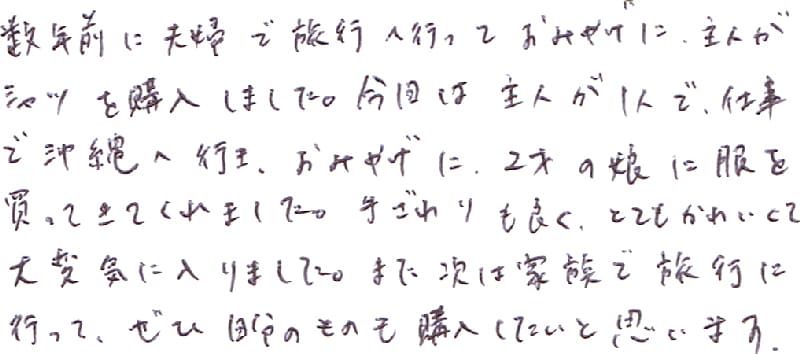 数年前に夫婦で旅行へ行っておみやげに、主人が
シャツを購入しました。今回は主人が1人で、仕事
で沖縄へ行き、おみやげに、2才の娘に服を
買ってきてくれました。手ざわりも良く、とてもかわいくて
大変気に入りました。また次は家族で旅行に
行って、ぜひ自分のものも購入したいと思います。